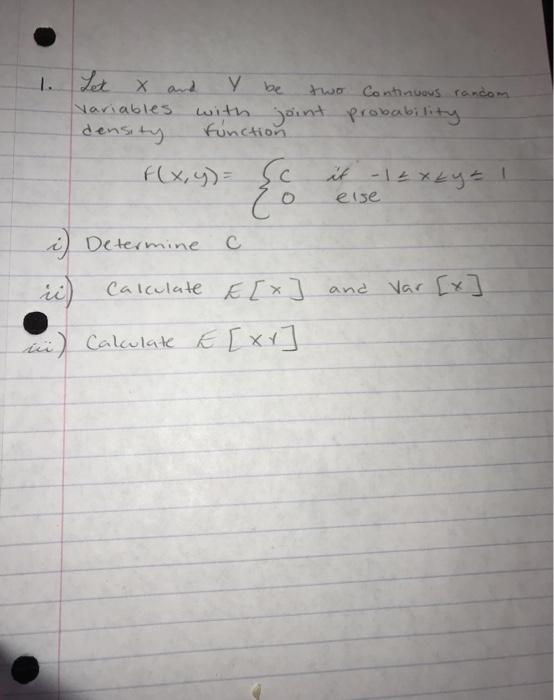 1. Let X and Y be two Continuous random
variables with joint probability
density function
f(x,y) = { c if -1 ≤ x ≤ y ≤ 1
0 else
i) Determine C
ii) Calculate E[X] and Var [X]
iii) Calculate E[XY]